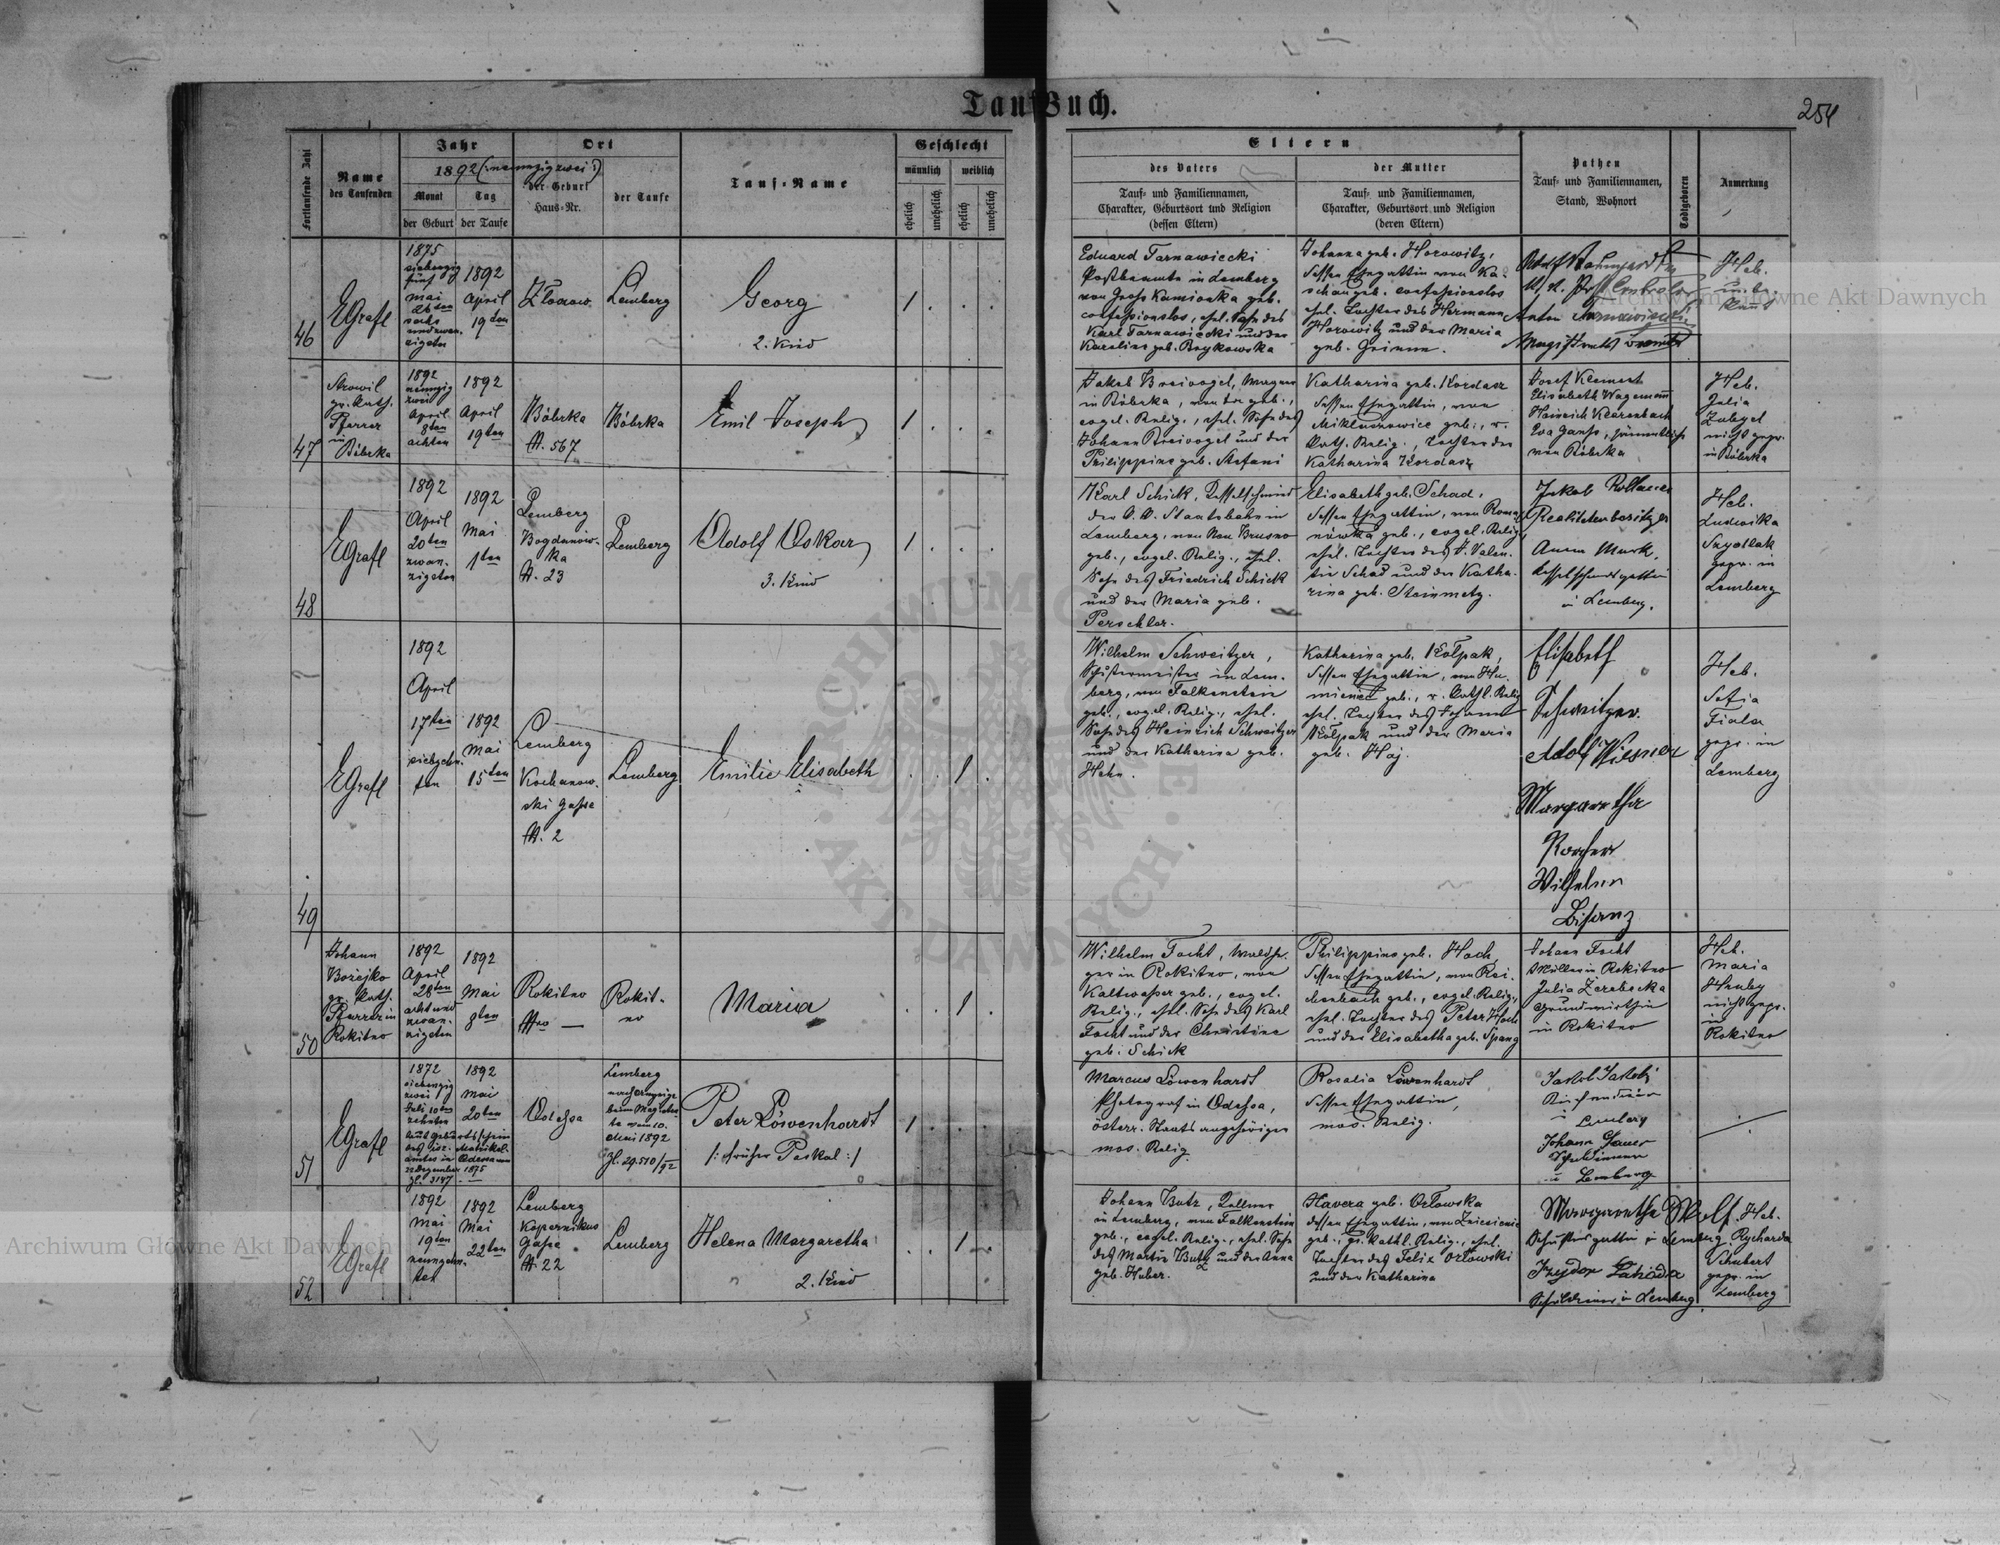 Tauf Buch.
254
Fortlaufende Zahl
Name
des Taufenden
Jahr
1892 (: neunzigzwei :)
Monat
der Geburt
Tag
der Taufe
Ort
der Geburt
Haus-Nr.
der Taufe
Tauf-Name
Geschlecht
männlich
weiblich
ehelich
unehelich
ehelich
unehelich
Eltern
des Vaters
Tauf- und Familiennamen,
Charakter, Geburtsort und Religion
(dessen Eltern)
der Mutter
Tauf- und Familiennamen,
Charakter, Geburtsort und Religion
(deren Eltern)
Pathen
Tauf- und Familiennamen,
Stand, Wohnort
Todtgeboren
Anmerkung
46
EGrafl
1875
siebenzig
fünf
Mai
26ten
sechs
undzwan-
zigsten
1892
April
19ten
Lemberg
Georg
2. Kind
1
Eduard Tarnawiecki
Postbeamte in Lemberg
von Gross Kamionka geb.
confessionslos, ehel. Sohn des
Karl Tarnawiecki und der
Karoline geb. Brykowska
Johanna geb. Horowitz,
dessen Ehegattin von Ka-
schau geb. confessionslos
ehel. Tochter des Hermann
Horowitz und der Maria
geb. Grimm.
Anton
Heb.
unbe-
kannt
47
gr. kath.
Pfarrer
in
Bóbrka
1892
neunzig
zwei
April
8ten
achten
1892
April
19ten
Bóbrka
N. 567
Bóbrka
Emil Joseph
1
Jakob Breivogel, Wagner
in Bóbrka, von da geb.,
evgel. Relig., ehel. Sohn des
Johann Breivogel und der
Philippine geb. Stefani
Katharina geb. Kordasz
dessen Ehegattin, von
geb., r.
kath. Relig., Tochter der
Katharina Kordasz
Josef Klement
Elisabeth Wagemann
Heinrich Kleerenbach
Eva Ganss, sämmtlich
von Bóbrka
Heb.
Julia
nicht gepr.
in Bóbrka
48
EGrafl
1892
April
20ten
zwan-
zigsten
1892
Mai
1ten
Lemberg
Bogdanow-
ka
N. 23
Lemberg
Adolf Oskar
3. Kind
1
Karl Schick, Kesselschmied
der k. k. Staatsbahn in
Lemberg, von Neu Brusno
geb., evgel. Relig., ehel.
Sohn des Friedrich Schick
und der Maria geb.
Perschler.
Elisabeth geb. Schad,
dessen Ehegattin, von Roma-
nówka geb., evgel. Relig.,
ehel. Tochter des J. Valen-
tin Schad und der Katha-
rina geb. Steinmetz.
Jakob
Realitätenbesitzer
Anna Mark,
Kesselschmiedgattin
in Lemberg.
Heb.
Ludwika
gepr. in
Lemberg
49
EGrafl
1892
April
17ten
siebzehn-
ten
1892
Mai
15ten
Lemberg
Kochanow-
ski Gasse
N. 2
Lemberg
Emilie Elisabeth
1
Wilhelm Schweitzer,
Schustermeister in Lem-
berg, von Falkenstein
geb., evgel. Relig., ehel.
Sohn des Heinrich Schweitzer
und der Katharina geb.
Hehn.
Katharina geb. Kołpak,
dessen Ehegattin, von Hu-
mieniec geb., r. kathl. Relig.
ehel. Tochter des Johann
Kołpak und der Maria
geb. Haj.
Elisabeth
Schweitzer.
Adolf Wiesner
Margaretha
Wilhelm
Bisanz
Heb.
Sofia
Fiala
gepr. in
Lemberg
50
Johann
Bożejko
gr. kath.
Pfarrer in
Rokitno
1892
April
28ten
achtund
zwan-
zigsten
1892
Mai
8ten
Rokitno
Nro —
Rokit-
no
Maria
1
Wilhelm Focht, Waldhe-
ger in Rokitno, von
Kaltwasser geb., evgel.
Relig., ehel. Sohn des Karl
Focht und der Christine
geb. Schick
Philippine geb. Hoch,
dessen Ehegattin, von Rei-
chenbach geb., evgel. Relig.,
ehel. Tochter des Peter Hoch
und der Elisabetha geb. Spang
Johann Focht
Müller in Rokitno
Julia Zerebecka
Grundwirthin
in Rokitno
Heb.
Maria
nicht gepr.
in
Rokitno
51
EGrafl
1872
siebenzig
zwei
Juli 10ten
zehnten
laut Geburtsschein
des isr. Matrikel-
amtes in Odessa vom
22 Dezember 1875
Zl. 3147
1892
Mai
20ten
Odessa
Lemberg
nach Anzeige
beim Magistra-
te vom 10.
Mai 1892
Zl. 29.510/92
Peter Löwenhardt
/: früher Paskal :/
1
Marcus Löwenhardt
Photograf in Odessa,
österr. Staatsangehöriger
mos. Relig.
Rosalia Löwenhardt
dessen Ehegattin,
mos. Relig.
Jakob Jakobi
Kirchendiener
in
Lemberg
Johann
Schuldiener
in Lemberg
52
EGrafl
1892
Mai
19ten
neunzehn-
ten
1892
Mai
22ten
Lemberg
Kopernikus
Gasse
N. 22
Lemberg
Helena Margaretha
2. Kind
1
Johann Butz, Kellner
in Lemberg, von Falkenstein
geb., evgel. Relig., ehel. Sohn
des Martin Butz und der Anna
geb. Huber.
Xavera geb. Orłowska
dessen Ehegattin, von Zniesienie
geb., gr. kathl. Relig., ehel.
Tochter des Felix Orłowski
und der Katharina
Margaretha Wolf
in Lemberg
Izydor
Schuldiener in Lemberg.
Heb.
Rycharda
Schubert
gepr. in
Lemberg
Archiwum Główne Akt Dawnych
Archiwum Główne Akt Dawnych
ARCHIWUM GŁÓWNE
AKT DAWNYCH